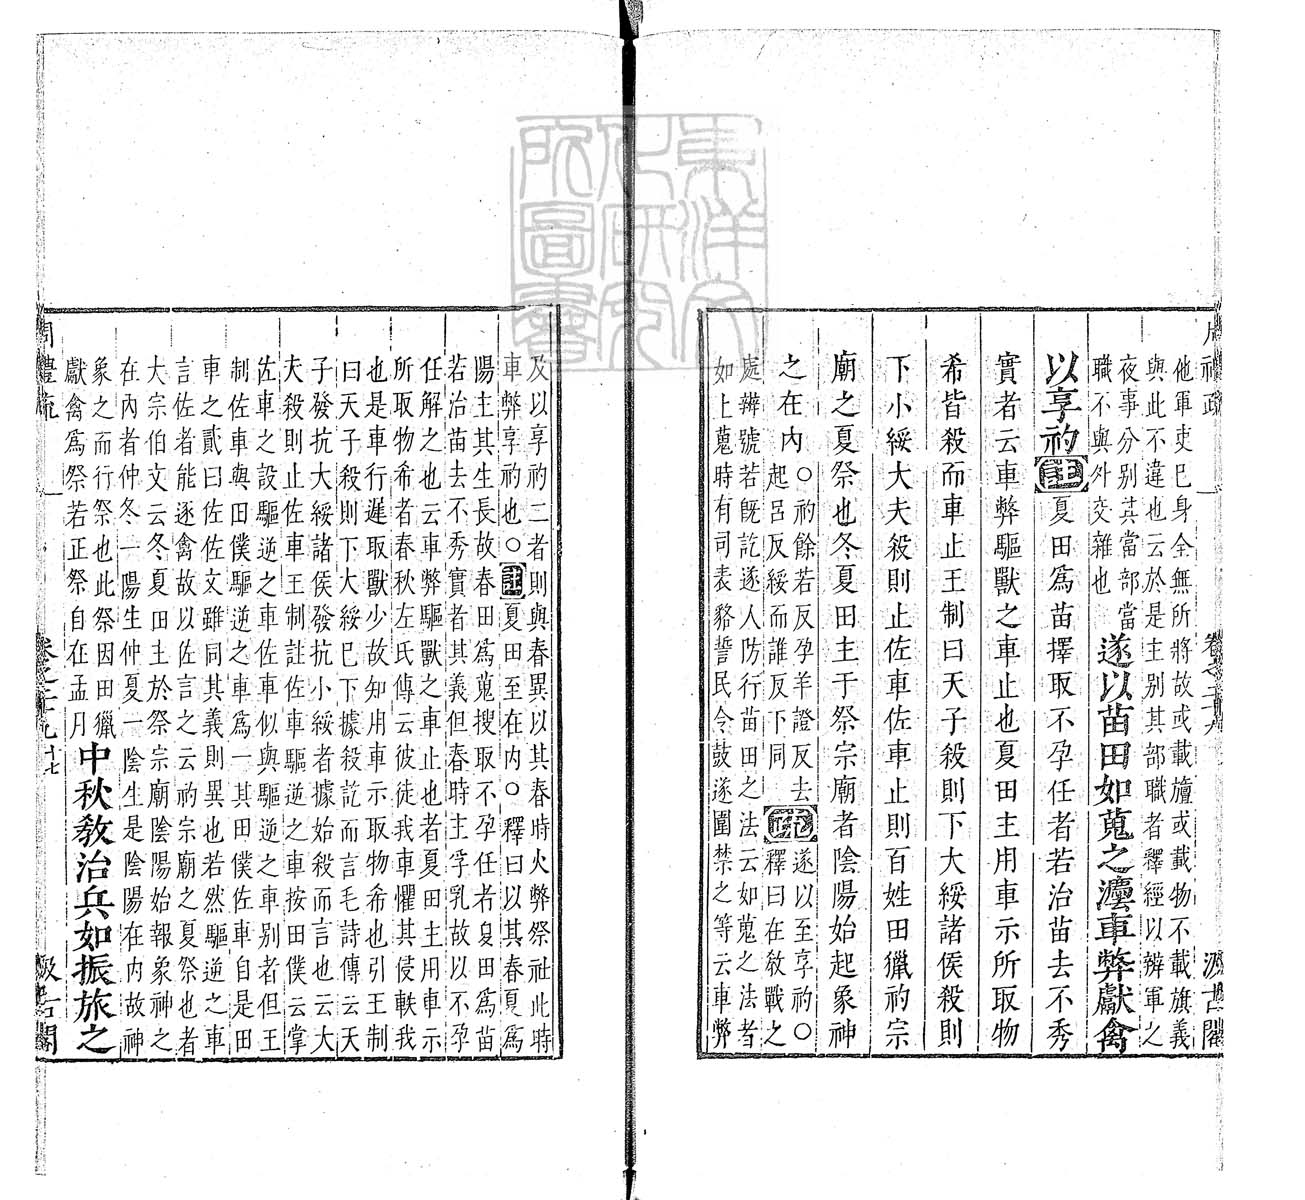 周禮疏
卷之二十九
汲古閣
他軍吏已身全無所將故或載旜或載物不載旗義
與此不違也云於是主別其部職者釋經以辨軍之
夜事分別其當部當
職不與外交雜也
遂以苗田如蒐之灋車弊獻禽
以享礿註夏田為苗擇取不孕任者若治苗去不秀
實者云車弊驅獸之車止也夏田主用車示所取物
希皆殺而車止王制曰天子殺則下大綏諸侯殺則
下小綏大夫殺則止佐車佐車止則百姓田獵礿宗
廟之夏祭也冬夏田主于祭宗廟者陰陽始起象神
之在內○礿餘若反孕羊證反去
起呂反綏而誰反下同
疏遂以至享礿○
釋曰在教戰之
處辨號若既訖遂入防行苗田之法云如蒐之法者
如上蒐時有司表貉誓民令鼓遂圍禁之等云車弊
及以享礿二者則與春異以其春時火弊祭社此時
車弊享礿也○註夏田至在內○釋曰以其春夏為
陽主其生長故春田為蒐搜取不孕任者夏田為苗
若治苗去不秀實者其義但春時主孚乳故以不孕
任解之也云車弊驅獸之車止也者夏田主用車示
所取物希者春秋左氏傳云彼徒我車懼其侵軼我
也是車行遲取獸少故知用車示取物希也引王制
曰天子殺則下大綏已下據殺訖而言毛詩傳云天
子發抗大綏諸侯發抗小綏者據始殺而言也云大
夫殺則止佐車王制註佐車驅逆之車按田僕云掌
佐車之設驅逆之車佐車似與驅逆之車別者但王
制佐車與田僕驅逆之車為一其田僕佐車自是田
車之貳曰佐佐文雖同其義則異也若然驅逆之車
言佐者能逐禽故以佐言之云礿宗廟之夏祭也者
大宗伯文云冬夏田主於祭宗廟陰陽始報象神之
在內者仲冬一陽生仲夏一陰生是陰陽在內故神
象之而行祭也此祭因田獵
獻禽為祭若正祭自在孟月
中秋教治兵如振旅之
周禮疏
卷之二十九 十七
汲古閣
東洋文化研究所圖書